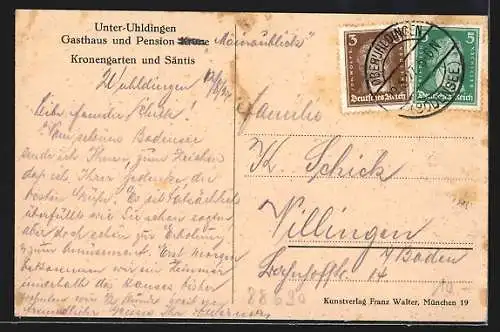 Unter-Uhldingen
Gasthaus und Pension Krone „Mainaublick“
Kronengarten und Säntis
Uhldingen
Liebe Familie Schick!
Am schönen Bodensee
sende ich Ihnen zum Zeichen
daß ich Ihrer gedenke die
besten Grüße. Es ist tatsächlich
überfüllt wie Sie schon sagten
aber doch schön zur Erholung
und zum Amüsement. Erst morgen
bekommen wir ein Zimmer
innerhalb des Hauses, bisher
wohnten wir
freundliche Grüße Ihr
Familie
K. Schick
Villingen
i/Baden
Bahnhofstr. 14
3
Deutsches Reich
5
Deutsches Reich
OBERUHLDINGEN
(BODENSEE)
88620
Kunstverlag Franz Walter, München 19